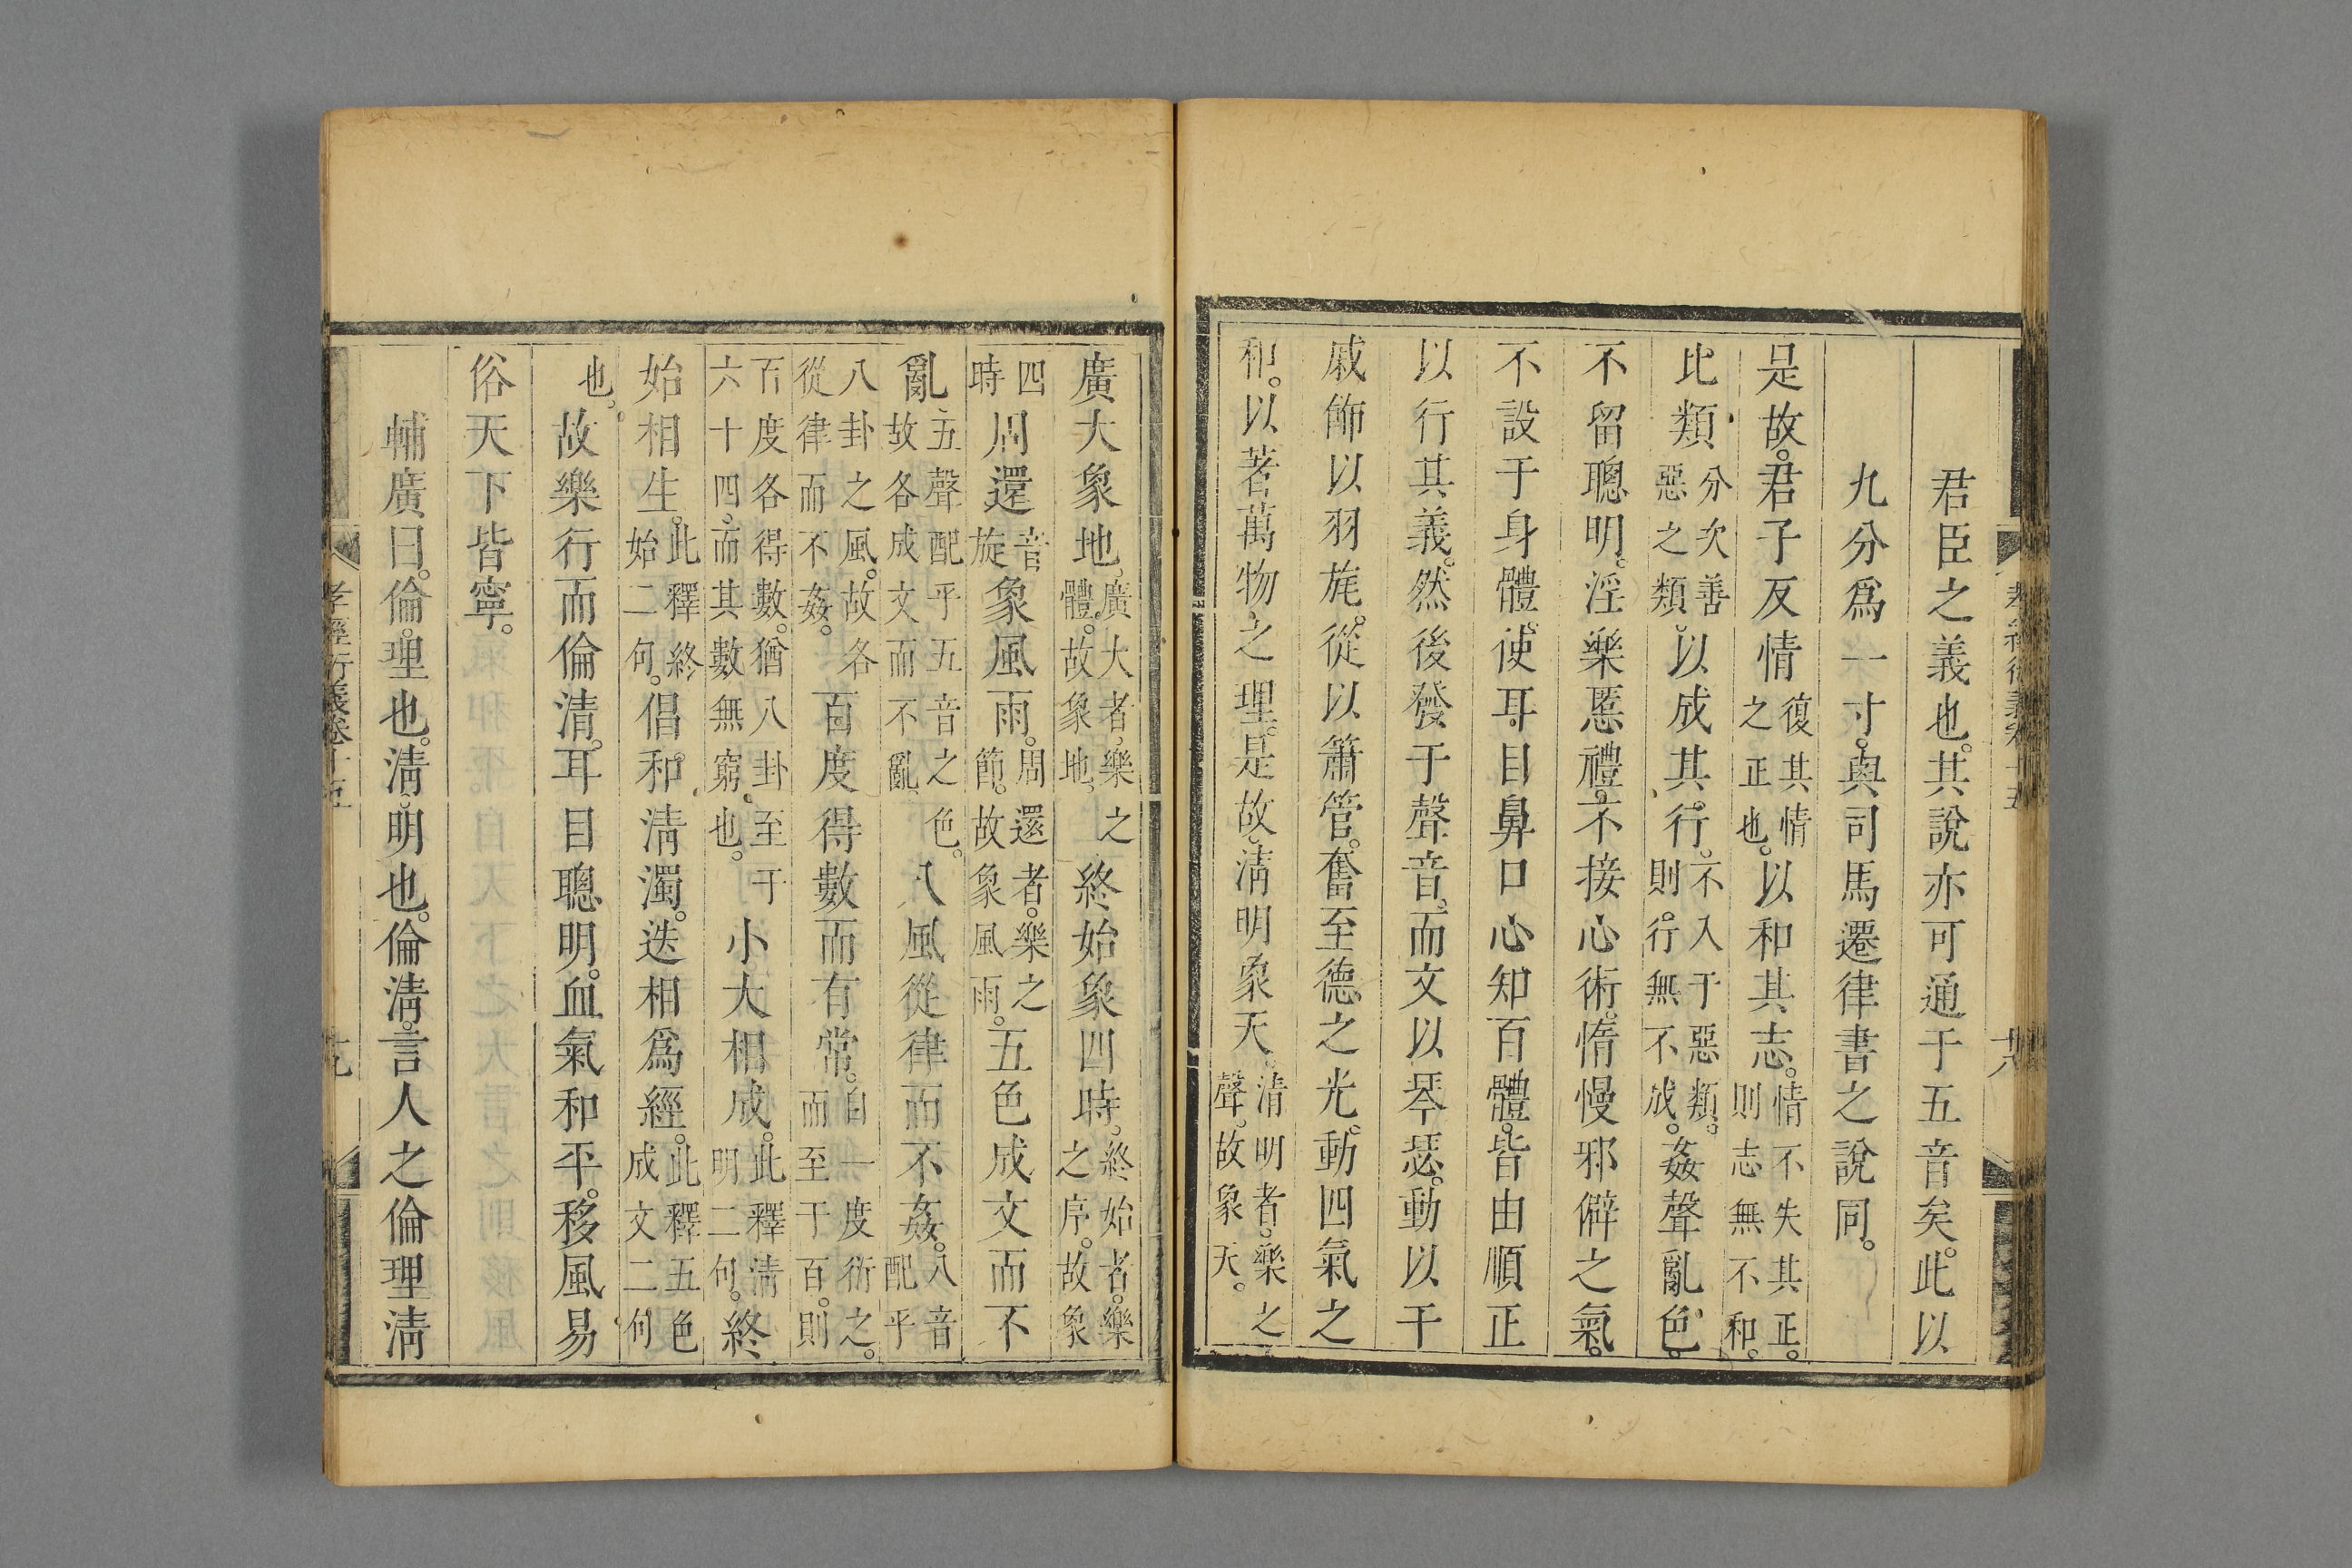 孝經衍義卷十五 十八
君臣之義也。其說亦可通于五音矣。此以
九分爲一寸。與司馬遷律書之說同。
是故。君子反情復其情之正也。以和其志。情不失其正。則志無不和。
比類分次善惡之類。以成其行。不入于惡類。則行無不成。姦聲亂色。
不留聰明。淫樂慝禮。不接心術。惰慢邪僻之氣。
不設于身體。使耳目鼻口心知百體。皆由順正
以行其義。然後發于聲音。而文以琴瑟。動以干
戚飾以羽旄。從以簫管。奮至德之光。動四氣之
和。以著萬物之理。是故。淸明象天。清明者。樂之聲。故象天。
廣大象地。廣大者。樂之體。故象地。終始象四時。終始者。樂之序。故象
四時周還音旋象風雨。周還者。樂之節。故象風雨。五色成文而不
亂。五聲配乎五音之色。故各成文而不亂八風從律而不姦。八音配乎
八卦之風。故各從律而不姦。百度得數而有常。自一度衍之。而至于百。則
百度各得數。猶八卦至于六十四。而其數無窮也。小大相成。此釋淸明二句。終
始相生。此釋終始二句。倡和淸濁。迭相爲經。此釋五色成文二句
也。故樂行而倫淸。耳目聰明。血氣和平。移風易
俗天下皆寧。
輔廣曰。倫。理也。淸。明也。倫淸。言人之倫理淸
孝經衍義卷十五 十九